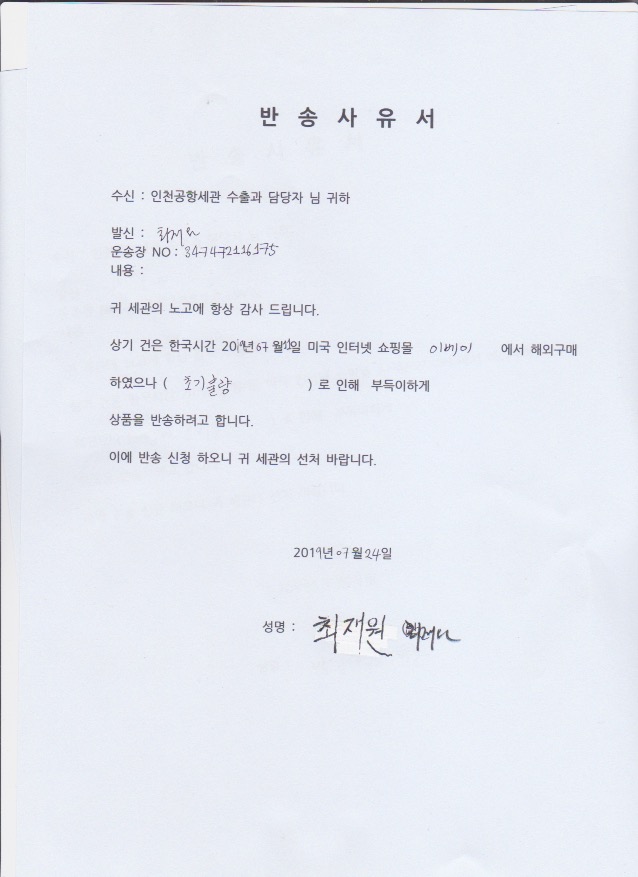 반 송 사 유 서
수신 : 인천공항세관 수출과 담당자 님 귀하
발신 : 최재원
운송장 NO : 347472116175
내용 :
귀 세관의 노고에 항상 감사 드립니다.
상기 건은 한국시간 2019년 07월 일 미국 인터넷 쇼핑몰 이베이 에서 해외구매
하였으나 ( 초기불량 ) 로 인해 부득이하게
상품을 반송하려고 합니다.
이에 반송 신청 하오니 귀 세관의 선처 바랍니다.
2019년 07월 24일
성명 : 최재원